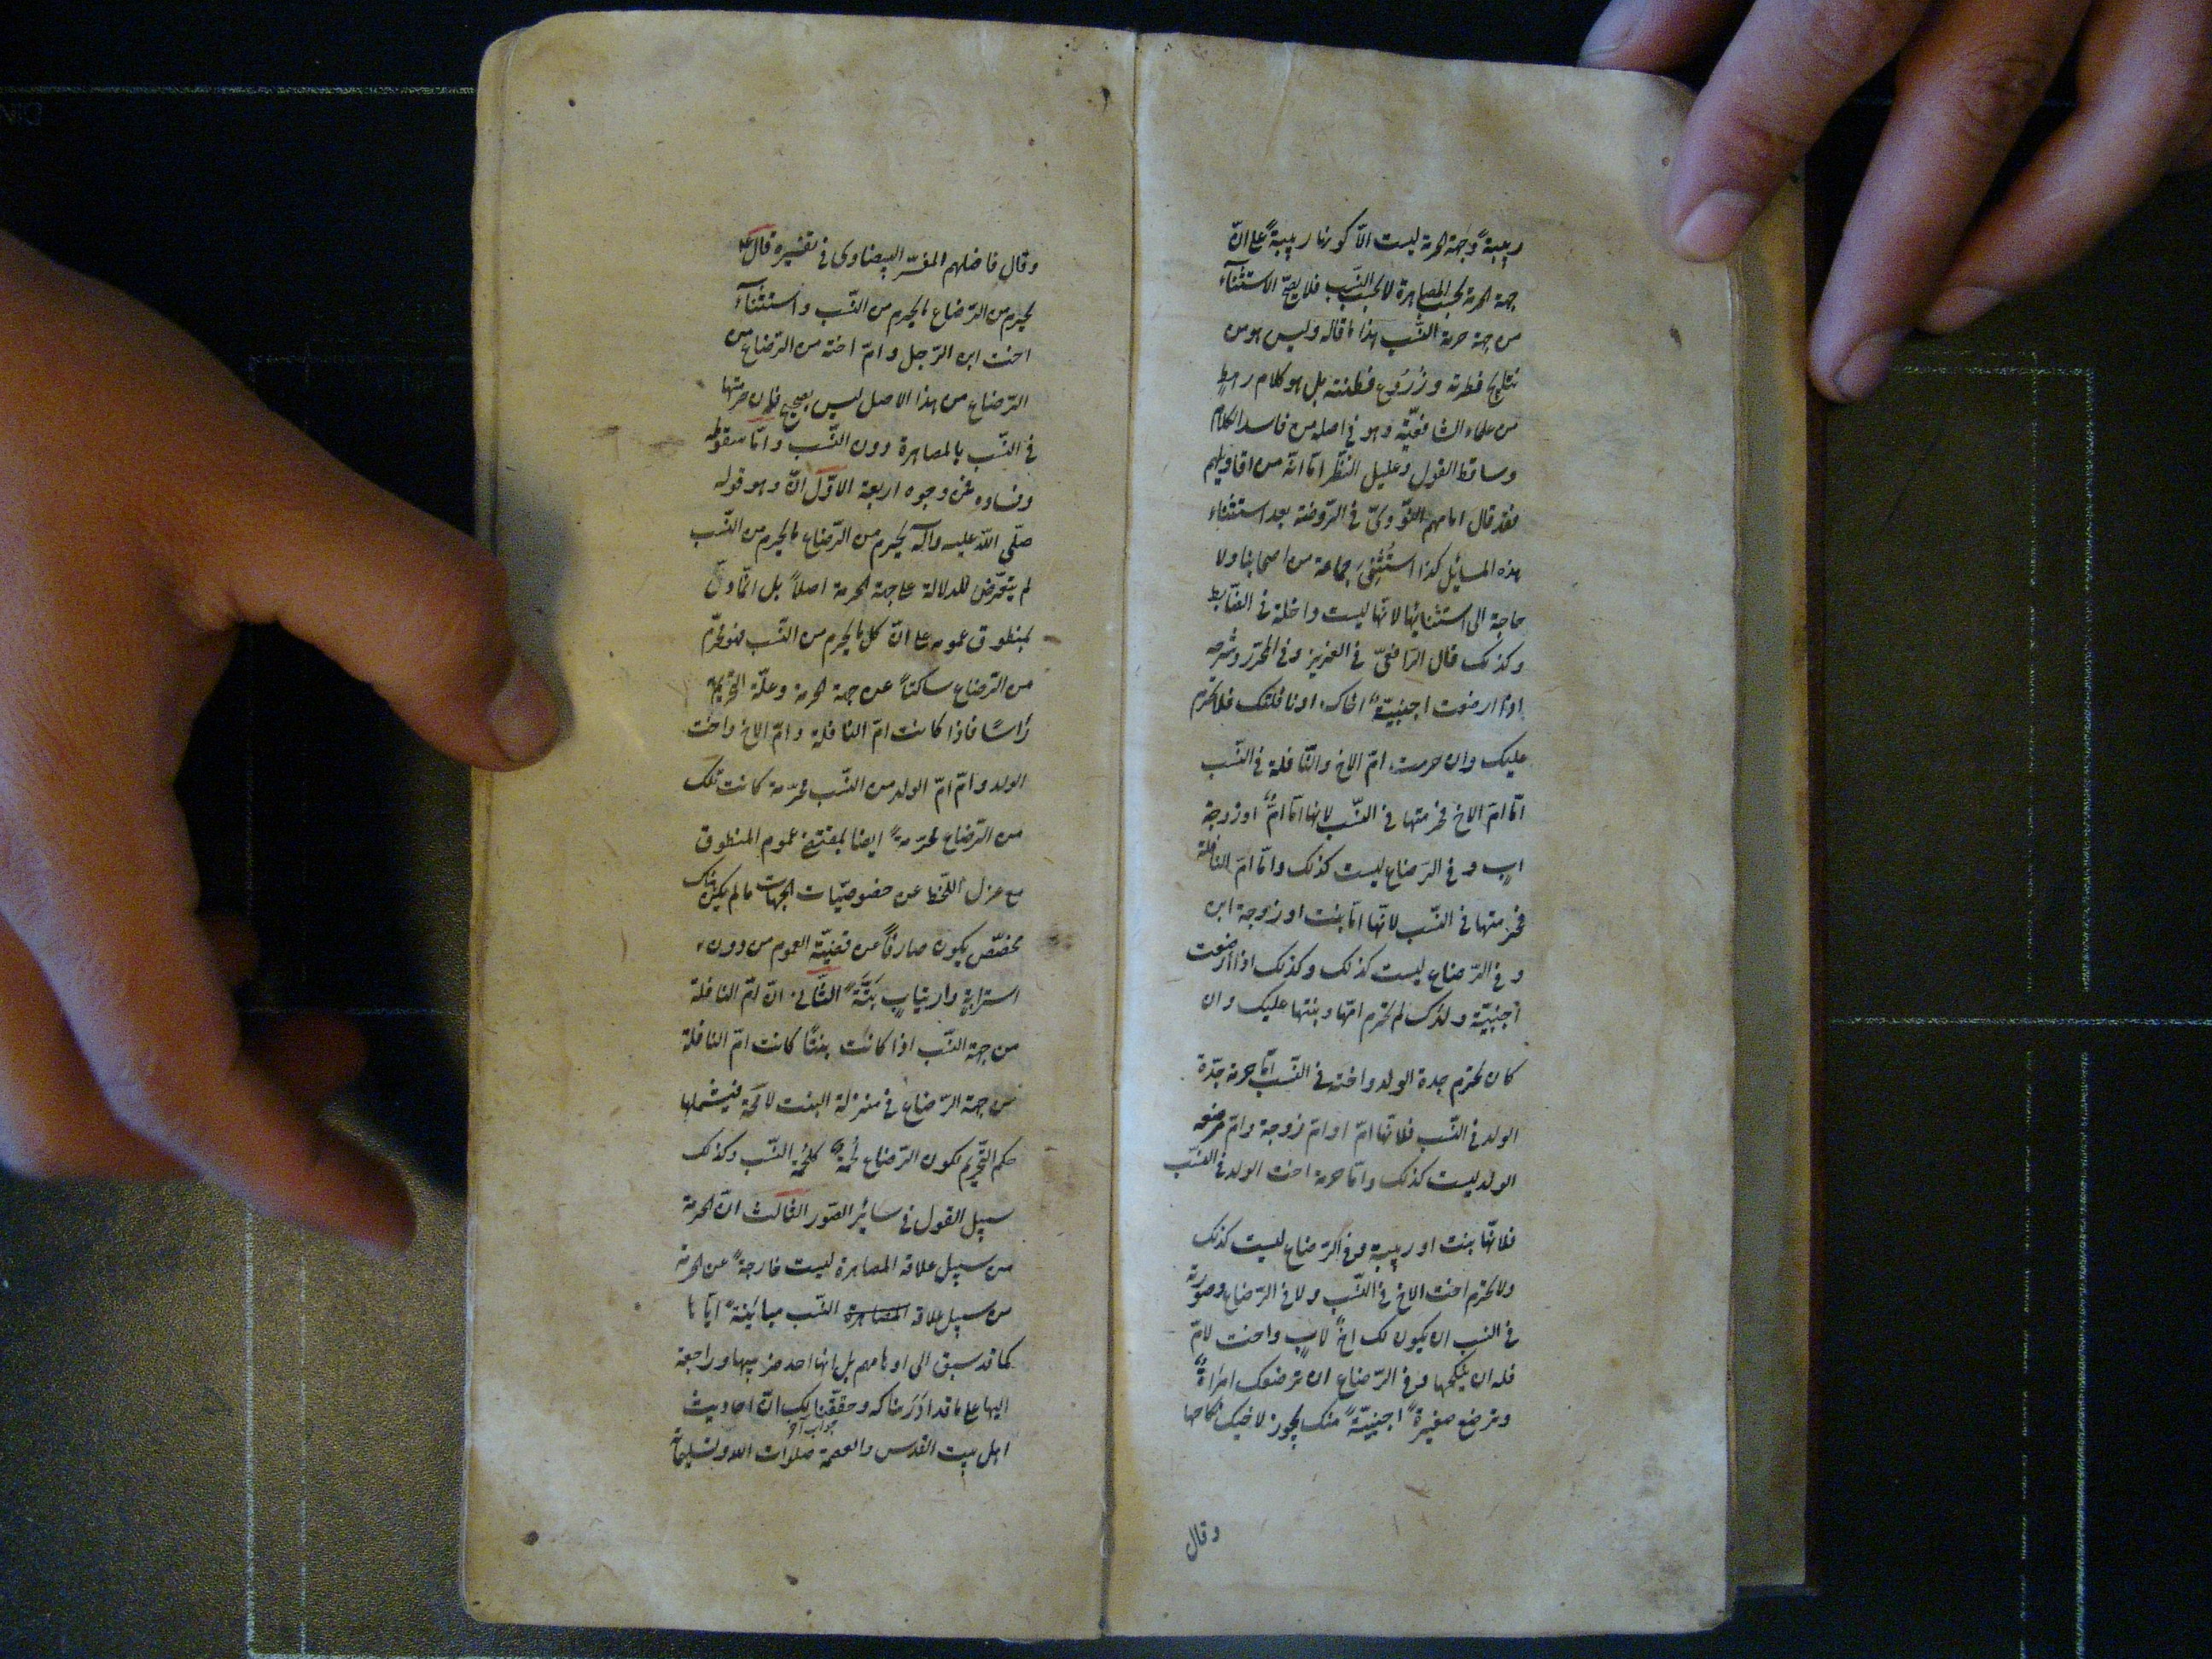 ربيبةً وجهة الحرمة ليست الّا كونها ربيبةً على انّ
جهة الحرمة بحسب المصاهرة لا بحسب النسب فلا يصحّ الاستثنآء
من جهة حرمة النّسب هذا ما قاله وليس هو من
فطرته و فطنته بل هو كلام رهطٍ
من علماء الشافعيّة وهو في اصله من فاسد الكلام
وساقط القول وعليل النّظر امّا انّه من اقاويلهم
فقد قال امامهم النّوويّ في الرّوضة بعد استثناء
هذه المسايل كذا استُثنِيَ جماعة من اصحابنا ولا
حاجة الى استثنايها لانّها ليست داخلة في الضّابط
وكذلك قال الرّافعيّ في العزيز وفي المحرّر وشرحه
اذا ارضعت اجنبيّةً اخاك او نافلتك فلا تحرم
عليك وان حرمت امّ الاخ والنّافلة في النّسب
امّا امّ الاخ فحرمتها في النّسب لانها امّا امٌّ او زوجة
ابٍ وفي الرّضاع ليست كذلك وامّا امّ النافلة
فحرمتها في النّسب لانّها امّا بنت او زوجة ابن
وفي الرّضاع ليست كذلك وكذلك اذا ارضعت
اجنبيّة ولدك لم تحرم امّها وبنتها عليك وان
كان تحرم جدة الولد واخته في النّسب امّا حرمة جدّة
الولد في النّسب فلانّها امّ او امّ زوجة وامّ مرضعة
الولد ليست كذلك وامّا حرمة اخت الولد في النّسب
فلانّها بنت او ربيبة وفي الرّضاع ليست كذلك
ولا تحرم اخت الاخ في النّسب ولا في الرّضاع وصورته
في النسب ان يكون لك اخٌ لابٍ واخت لامّ
فله ان ينكحها وفي الرّضاع ان ترضعك امراةٌ
وترضع صغيرةً اجنبيّةً منك يجوز لاخيك نكاحها
وقال
وقال فاضلهم المفسّر البيضاوى في تفسيره قال
يحرم من الرّضاع ما يحرم من النّسب واستثنآء
اخت ابن الرّجل وامّ اخته من الرّضاع من
الرّضاع من هذا الاصل ليس بصحيح فان حرمتها
في النّسب بالمصاهرة دون النّسب وامّا سقوطه
وفساده فمن وجوه اربعة الاوّل انّ وهو قوله
صلّى اللّه عليه وآله يحرم من الرّضاع ما يحرم من النّسب
لم يتعرّض للدلالة على جهة الحرمة اصلاً بل انّما دلّ
بمنطوق عمومه على انّ كل ما يحرم من النّسب فهو محرّم
من الرّضاع ساكتاً عن جهة الحرمة وعلّة التحريم
رأسًا فاذا كانت امّ النافلة وامّ الاخ واخت
الولد وامّ امّ الولد من النّسب محرّمة كانت تلك
من الرّضاع محرّمةً ايضا بمقتضى عموم المنطوق
مع عزل اللّحظ عن خصوصيّات الجهات ما لم يكن هناك
مخصّص يكون صارفاً عن قضيّة العموم من دون
استرابةٍ وارتيابٍ بَتَّةً الثّاني انّ امّ النافلة
من جهة النّسب اذا كانت بنتًا كانت امّ النافلة
من جهة الرّضاع في منزلة البنت لا محة فيشملها
حكم التّحريم لكون الرّضاع لُحمةً كلحمة النّسب وكذلك
سبيل القول في سائر الصّور الثالث انّ الحرمة
من سبيل علاقة المصاهرة ليست خارجةً عن الحرمة
من سبيل علاقة المصاهرة النّسب مباينةً ايّاها
كما قد سبق الى اوهامهم بل انها احد ضربيها وراجعة
اليها على ما قد ادريناكه وحقّقنا لك انّ احاديث
اهل بيت القدس والعصمة صلوات اللّه وتسليماته